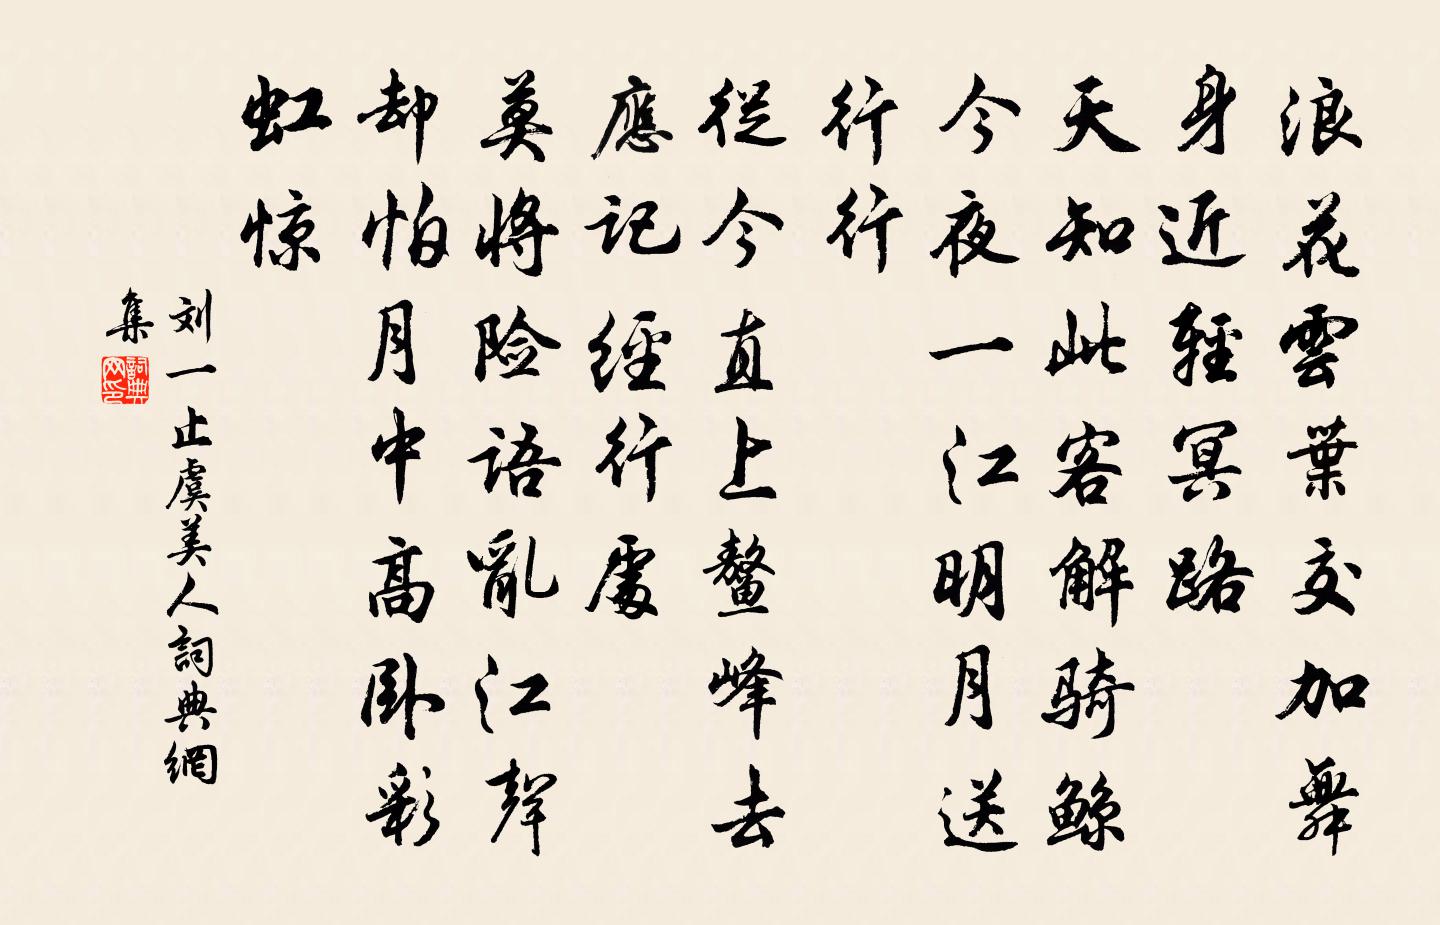 浪花雲葉交加舞
身近輕冥路
天知此客解骑鲸
今夜一江明月送
行行
從今直上鼇峰去
應記經行處
莫將险語亂江聲
却怕月中高卧彩
虹惊
刘一止虞美人詞典網
集
詞典网印